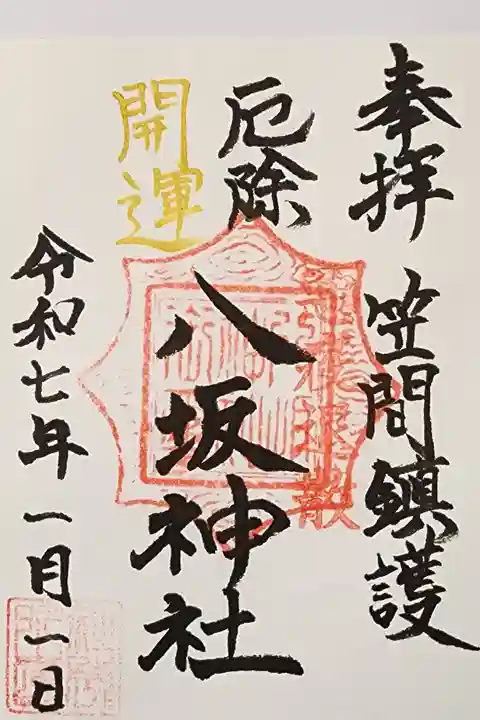 奉拝
笠間鎮護
厄除
開運
八坂神社
令和七年一月一日